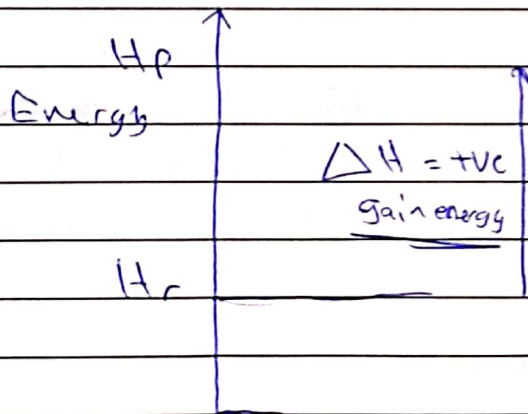 Hp
Energy
ΔH = +ve
gain energy
Hr